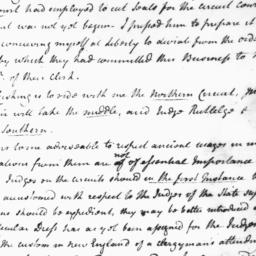 had employed to cut Seals for the circuit Cour
but was not yet begun. I pressed him to prepare it
conceiving myself at liberty to deviate from the orde
by which they had committed this Business to
of their Clerk.
wishing to ride with me the Northern Circuit,
will take the middle, and Judge Rutledge
Southern.
some adviseable to respect ancient usages in
ations from them are not of essential Importance
Judges on the circuits should in the first Instance
accustomed with respect to the Judges of the State sup
me should be expedient, they may be better introduced
cular Dress has as yet been assigned for the Judges
the custom in new England of a clergyman's attendin